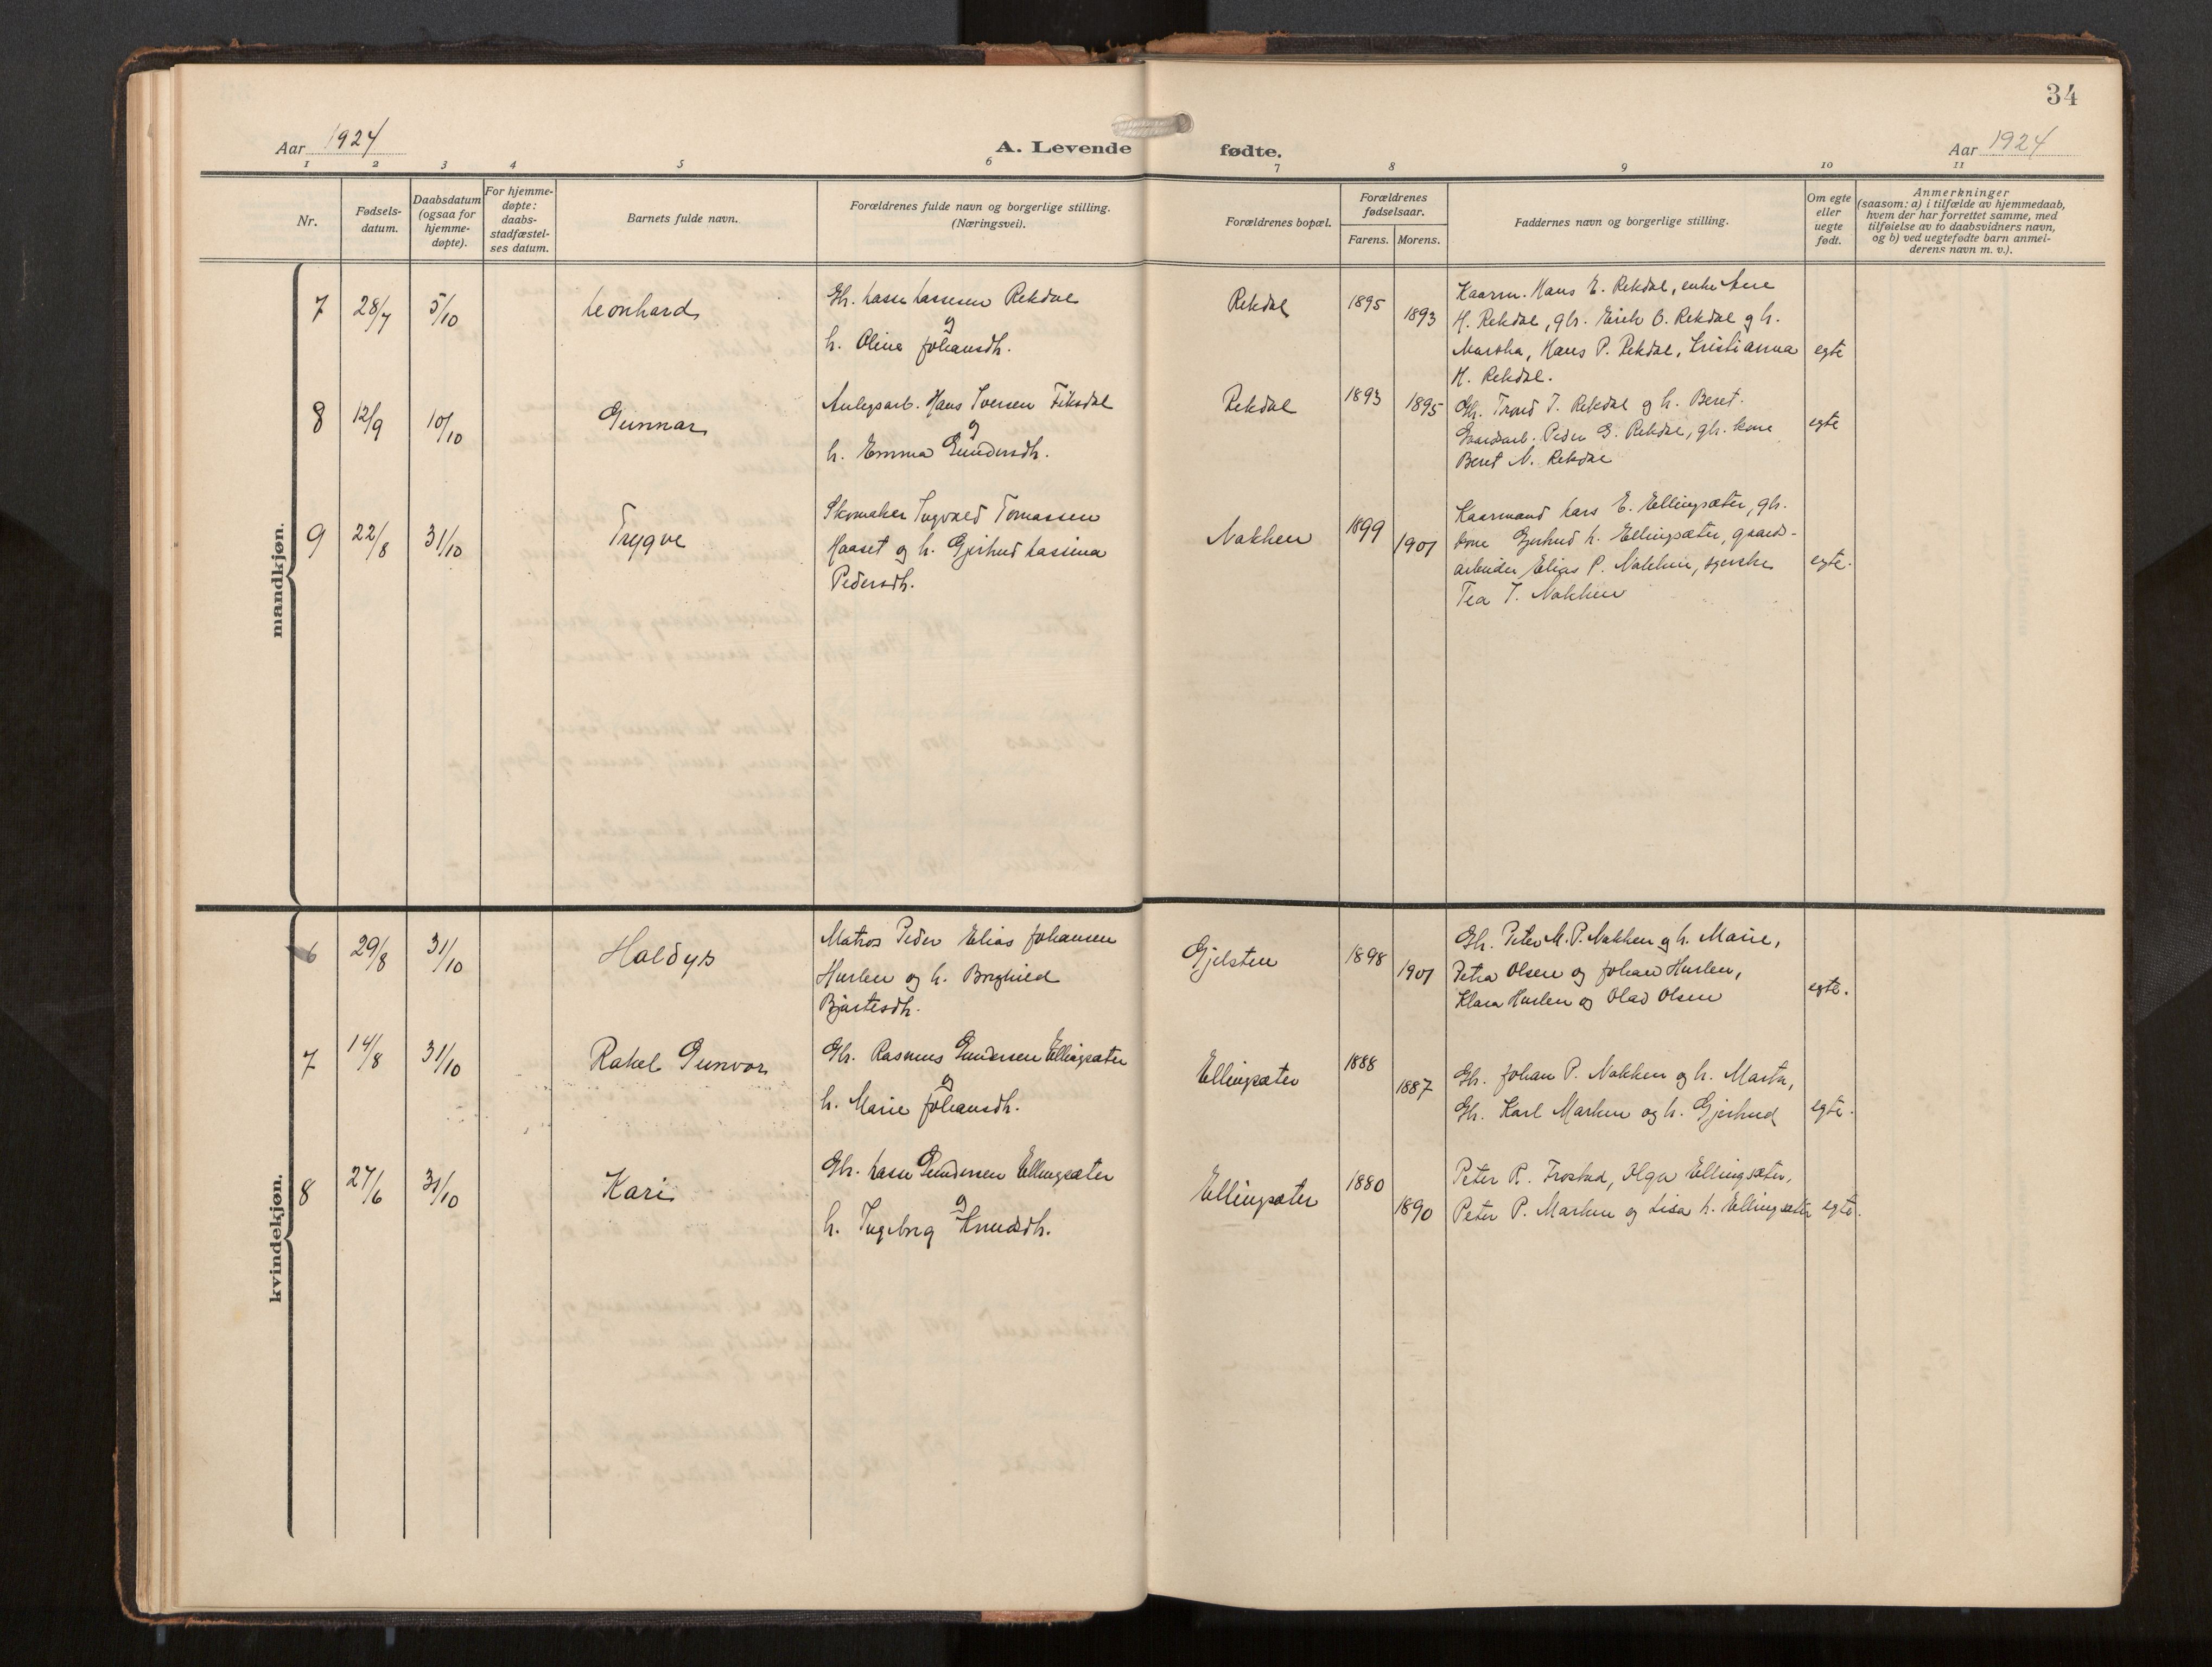 34
Aar 1924
A. Levende fødte.
Aar 1924
1 2 3 4 5 6 7 8 9 10 11
Nr.
Fødsels-
datum.
Daabsdatum
(ogsaa for
hjemme-
døpte).
For hjemme-
døpte:
daabs-
stadfæstel-
ses datum.
Barnets fulde navn.
Forældrenes fulde navn og borgerlige stilling.
(Næringsvei).
Forældrenes bopæl.
Forældrenes
fødselsaar.
Farens. Morens.
Faddernes navn og borgerlige stilling.
Om egte
eller
uegte
født.
Anmerkninger
(saasom: a) i tilfælde av hjemmedaab,
hvem der har forrettet samme, med
tilføielse av to daabsvidners navn,
og b) ved uegtefødte barn anmel-
derens navn m. v.).
mandkjøn.
7 28/7 5/10 Leonhard
Gbr. Lasse Lassesen Rekdal
og
h. Oline Johansdh.
Rekdal 1895 1893
Kaarm. Hans E. Rekdal, enke Ane
H. Rekdal, gbr. Erik O. Rekdal og h.
Martha, Hans P. Rekdal, Kristianna
H. Rekdal.
egte
8 12/9 10/10 Gunnar
Anlegsarb. Hans Iversen Fiksdal
og
h. Emma Gundersdh.
Rekdal 1893 1895
Gbr. Trond J. Rekdal og h. Beret.
Gaardsarb. Peder G. Rekdal, gbr. kone
Beret N. Rekdal
egte
9 22/8 31/10 Trygve
Skomaker Ingvald Tomassen
Haaset og h. Gjerhud Lassina
Pedersdh.
Nakken 1899 1901
Kaarmand Lars E. Ellingsæter, gbr.
kone Gjerhud L. Ellingsæter, gaards-
arbeider Elias P. Nakken, syerske
Tea T. Nakken
egte.
kvindekjøn.
6 29/8 31/10 Haldys
Matros Peder Elias Johansen
Hurlen og h. Borghild
Bjartesdh.
Gjelsten 1898 1901
Gbr. Peter M. P. Nakken og h. Marie,
Petra Olsen og Johan Hurlen,
Klara Hurlen og Olav Olsen
egte.
7 14/8 31/10 Rakel Gunvor
Gbr. Rasmus Gundersen Ellingsæter
og
h. Marie Johansdh.
Ellingsæter 1888 1887
Gbr. Johan P. Nakken og h. Marta,
Gbr. Karl Marken og h. Gjerhud
egte.
8 27/6 31/10 Kari
Gbr. Lasse Gundersen Ellingsæter
og
h. Ingeborg Knudsdh.
Ellingsæter 1880 1890
Peter R. Frostad, Olga Ellingsæter,
Peter P. Marken og Lisa L. Ellingsæter
egte.